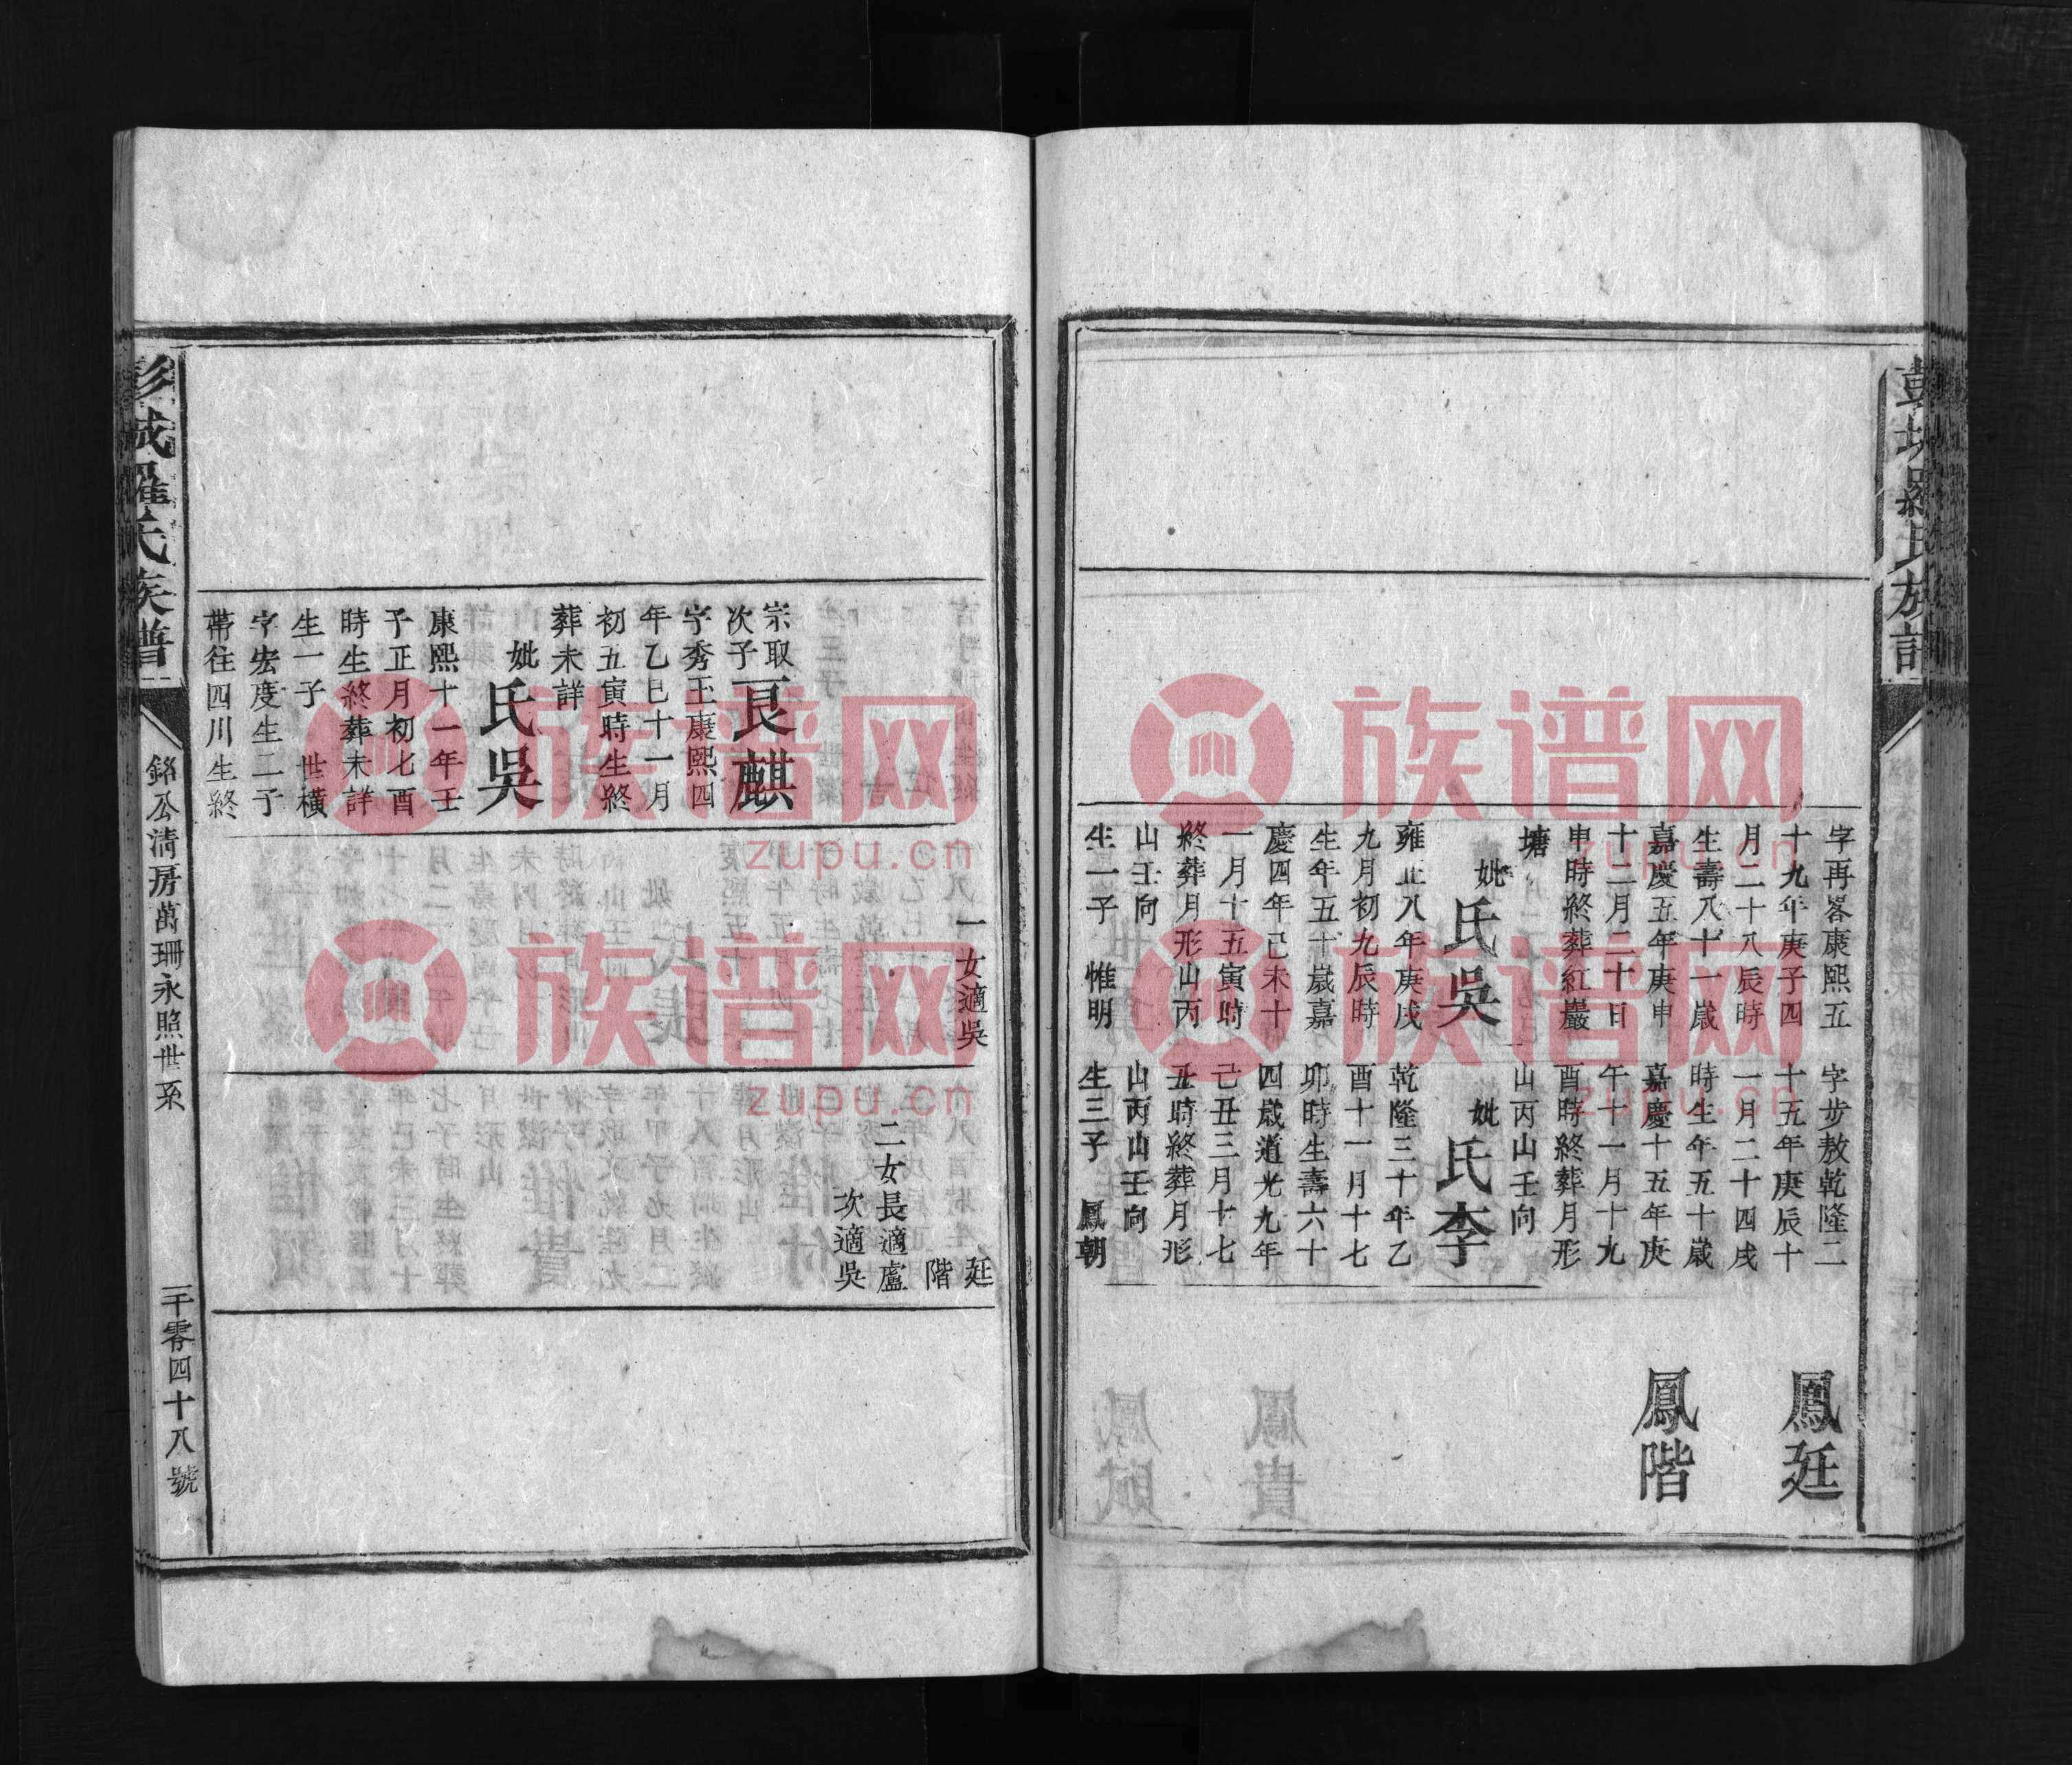 彭城羅氏族譜
字再畧康熙五
十九年庚子四
月二十八辰時
生壽八十一歲
嘉慶五年庚申
十二月二十日
申時終葬紅巖
塘
妣
氏吳
雍正八年庚戌
九月初九辰時
生年五十歲嘉
慶四年己未十
一月十五寅時
終葬月形山丙
山壬向
生一子 惟明
字步敖乾隆二
十五年庚辰十
一月二十四戌
時生年五十歲
嘉慶十五年庚
午十一月十九
酉時終葬月形
山丙山壬向
妣
氏李
乾隆三十年乙
酉十一月十七
卯時生壽六十
四歲道光九年
己丑三月十七
丑時終葬月形
山丙山壬向
生三子 鳳朝
鳳廷
鳳階
一女適吳
廷
階
二女長適盧
次適吳
宗取
次子
艮麒
字秀玉康熙四
年乙巳十一月
初五寅時生終
葬未詳
妣
氏吳
康熙十一年壬
子正月初七酉
時生終葬未詳
生一子 世橫
字宏度生二子
帶往四川生終
彭城羅氏族譜
銘公清房萬珊永照世系
一千零四十八號
族谱网
zupu.cn
族谱网
zupu.cn
族谱网
zupu.cn
族谱网
zupu.cn